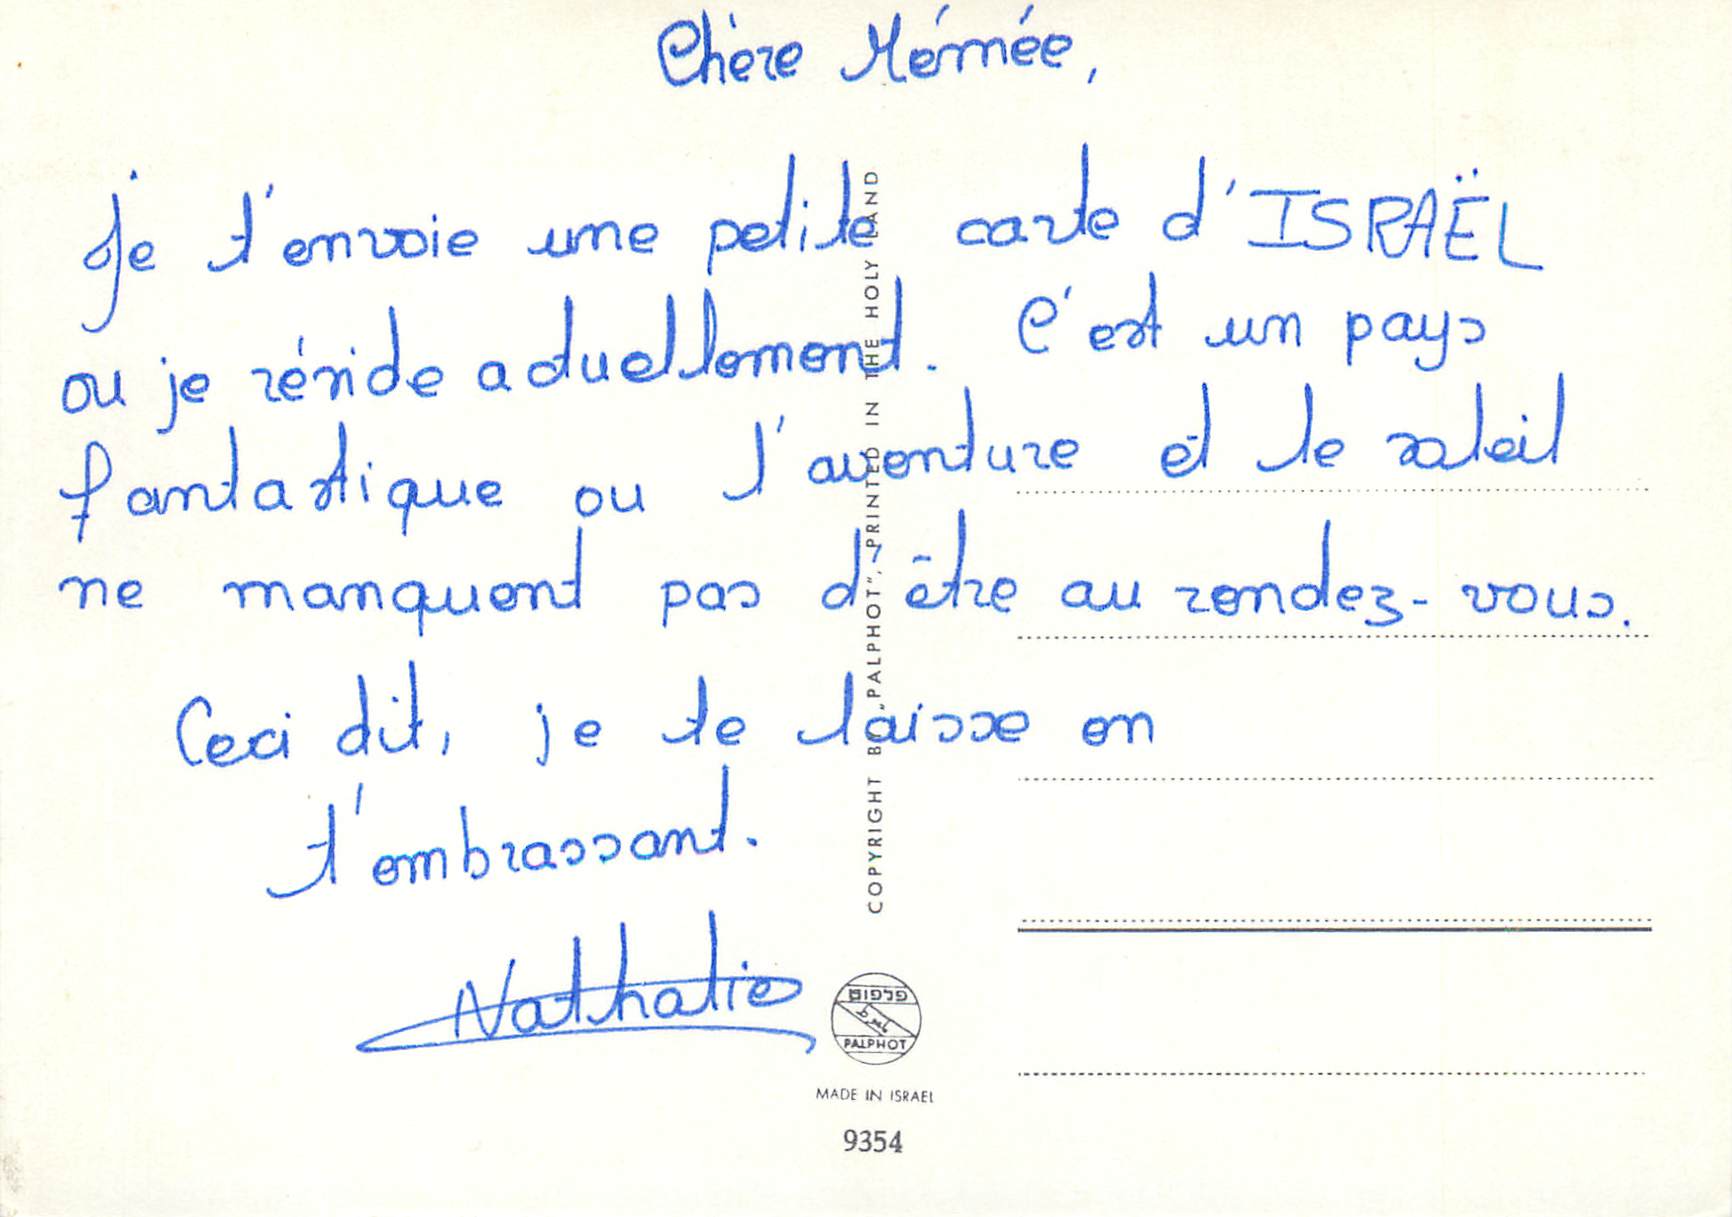 Chère Mémée,
Je t'envoie une petite carte d'ISRAËL
ou je réside actuellement. C'est un pays
fantastique ou l'aventure et le soleil
ne manquent pas d'être au rendez-vous.
Ceci dit, je te laisse en
t'embrassant.
Nathalie
COPYRIGHT BY „PALPHOT”, PRINTED IN THE HOLY LAND
פלפוט
PALPHOT
MADE IN ISRAEL
9354